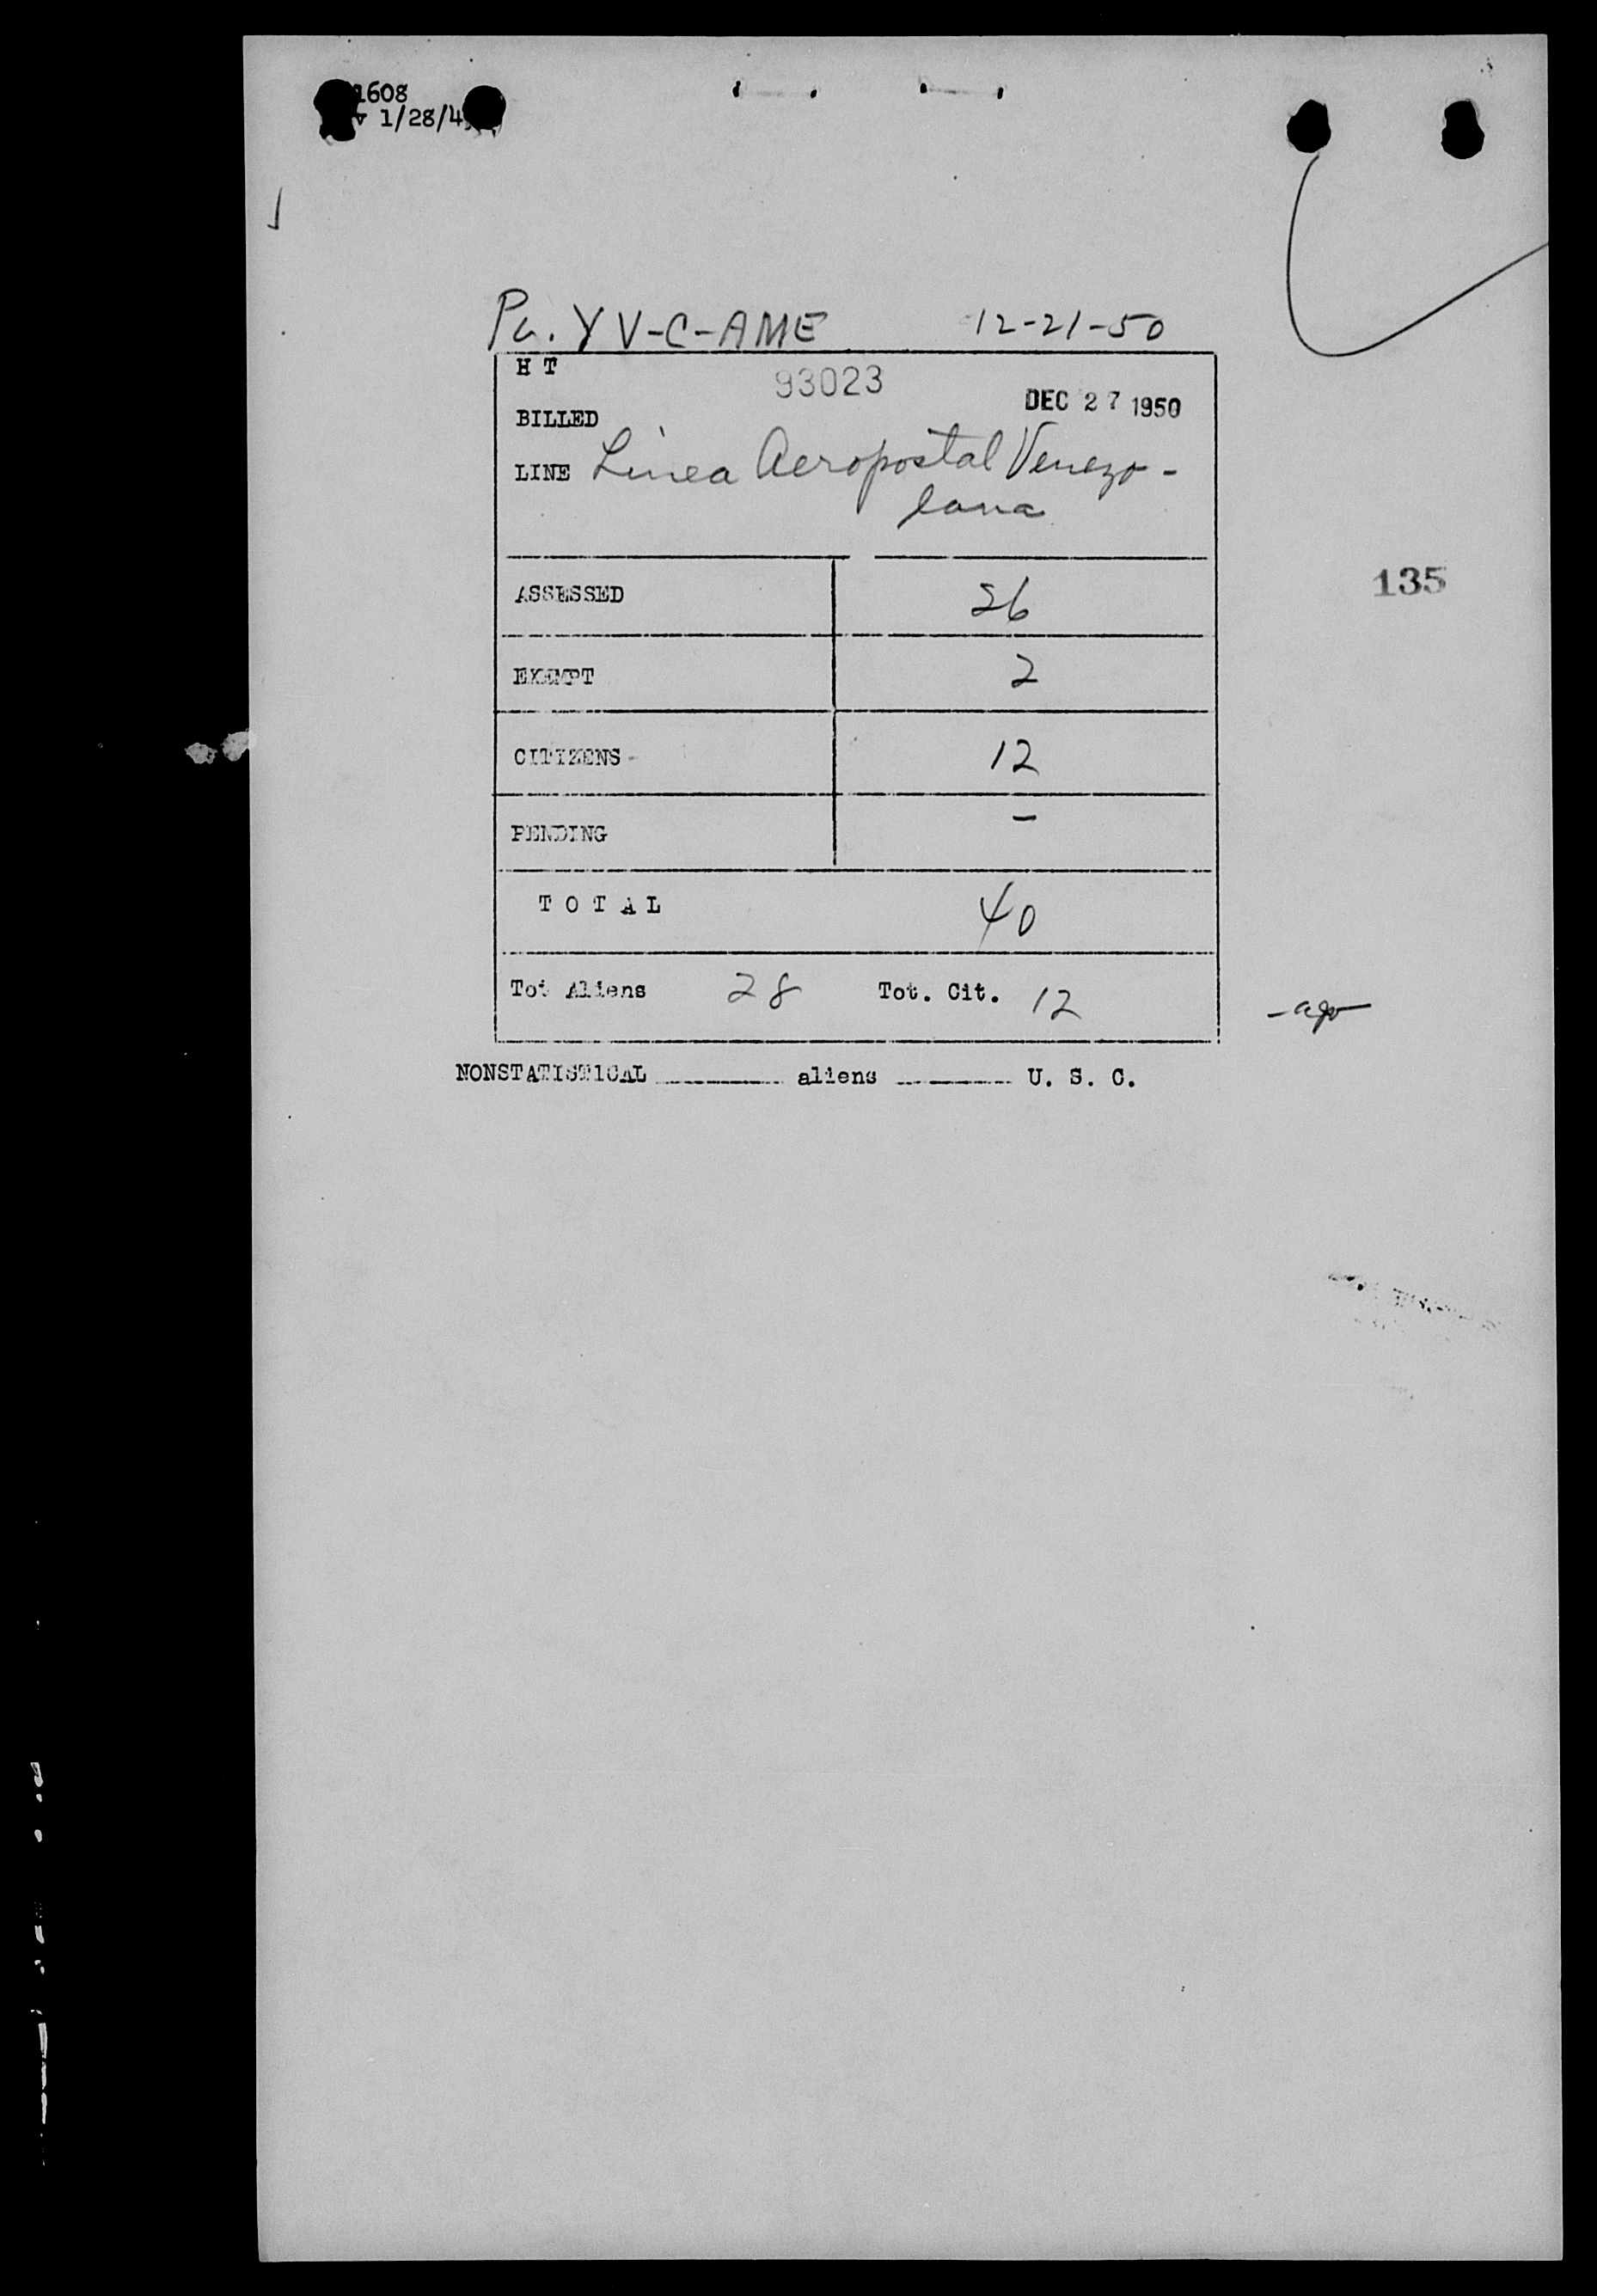 1608
1/28/4
Pa. YV-C-AME 12-21-50
H T
93023
DEC 27 1950
BILLED
LINE Linea Aeropostal Venezo-
lana
135
ASSESSED 26
EXEMPT 2
CITIZENS - 12
PENDING -
TOTAL 40
Tot Aliens 28 Tot. Cit. 12
NONSTATISTICAL ________ aliens ________ U. S. C.